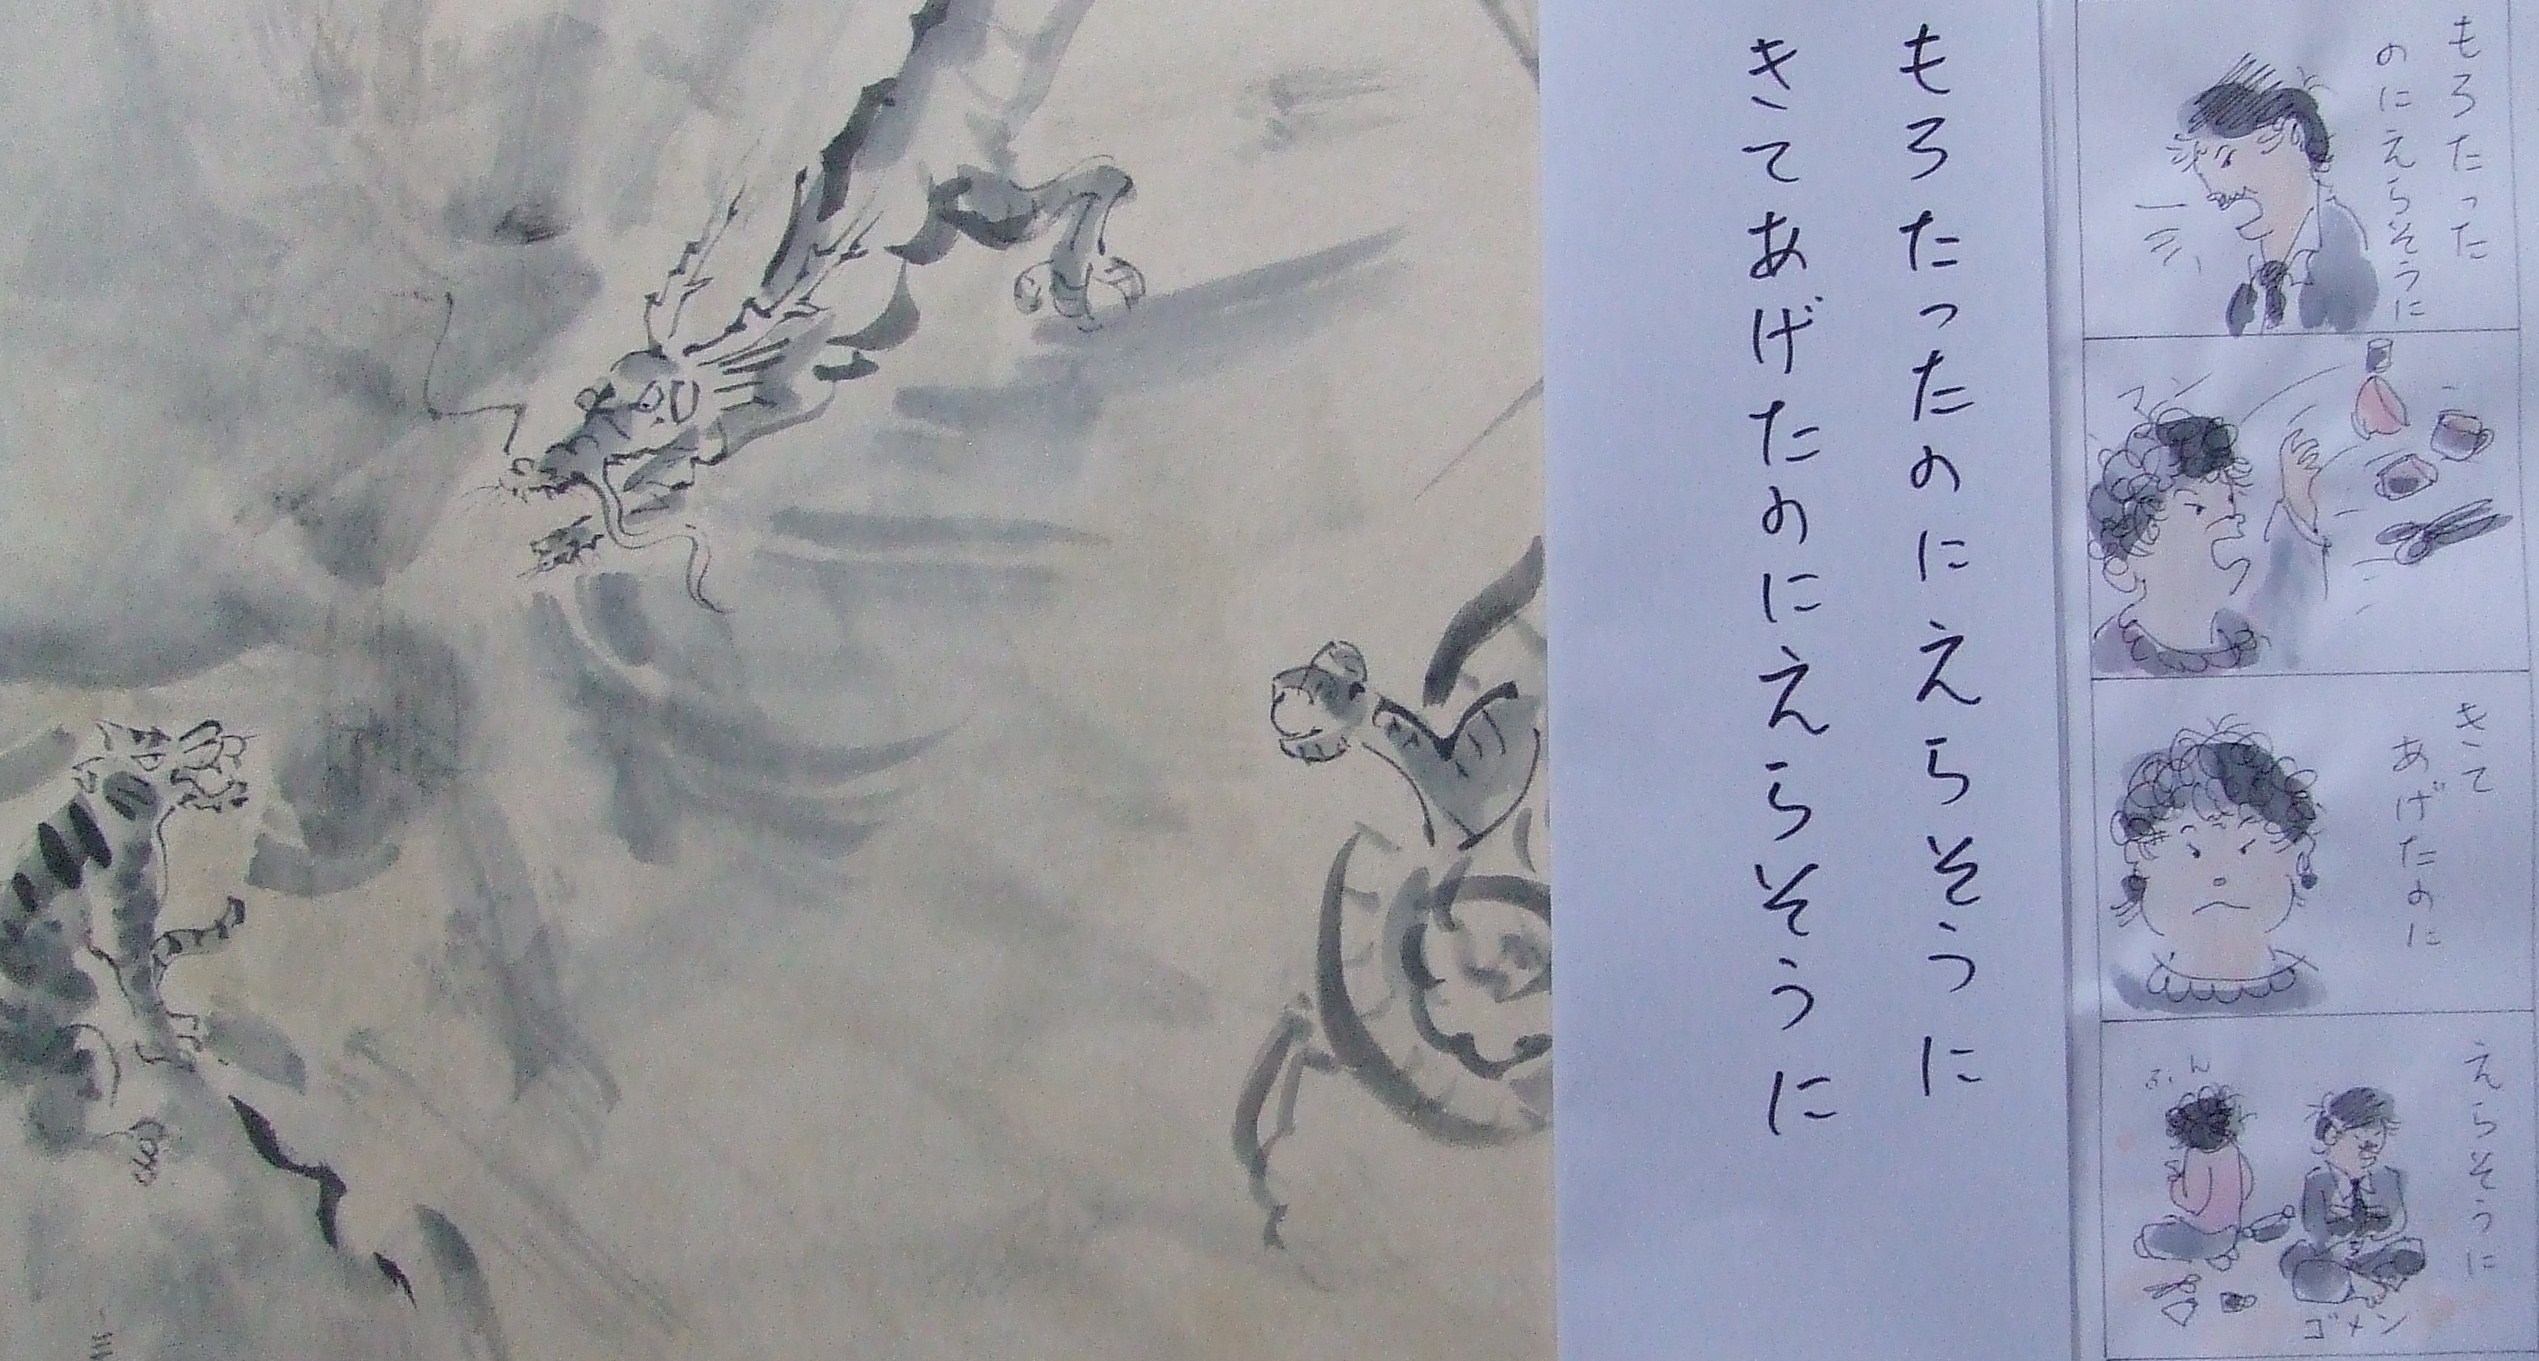 もろたったのにえらそうに
きてあげたのにえらそうに
もろたった
のにえらそうに
きて
あげたのに
えらそうに
ふん
ゴメン